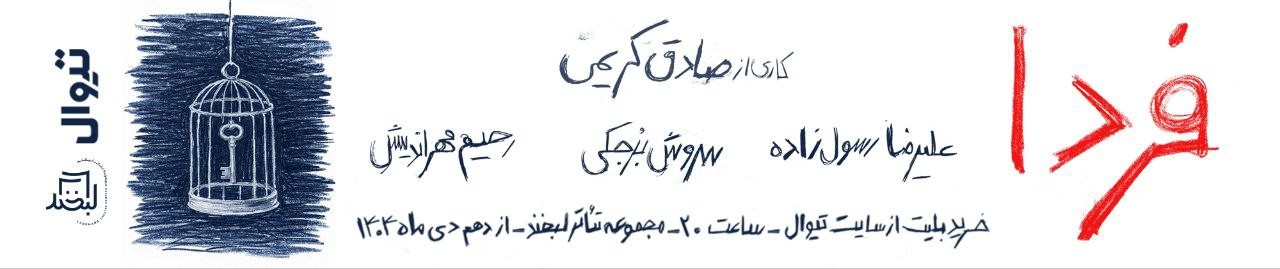 فردا
کاری از صادق کریمی
علیرضا رسول‌زاده
سروش برجکی
رحیم مهراندیش
خرید بلیت از سایت تیوال - ساعت ۲۰ - مجموعه تئاتر لبخند - از دهم دی ماه ۱۴۰۴
تیوال
لبخند